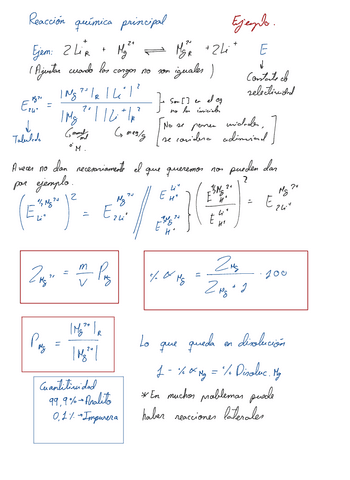 Reacción química principal
Ejemplo.
Ejem: 2 Li⁺_R + Mg²⁺ ⇌ Mg²⁺_R + 2 Li⁺ E
(Ajustar cuando las cargas no son iguales)
Constante de
selectividad
E^{Mg²⁺}_{2Li⁺} = |Mg²⁺|_R |Li⁺|² / |Mg²⁺| |Li⁺|²_R
Son [ ] en el eq
no las iniciales
Tabulada
M.
meq/g
[No se ponen unidades,
se considera adimensional]
A veces no dan necesariamente el que queremos nos pueden dar
por ejemplo.
(E^{½Mg²⁺}_{Li⁺})² = E^{Mg²⁺}_{2Li⁺} // E^{Li⁺}_{H⁺} E^{½Mg²⁺}_{H⁺} } (E^{½Mg²⁺}_{H⁺} / E^{Li⁺}_{H⁺})² = E^{Mg²⁺}_{2Li⁺}
Z_{Mg²⁺} = m/V P_{Mg}
% α_{Mg} = Z_{Mg} / (Z_{Mg} + 1) · 100
P_{Mg} = |Mg²⁺|_R / |Mg²⁺|
Lo que queda en disolución
1 - % α_{Mg} = % Disoluc. Mg
Cuantitividad
99,9% → Analito
0,1% → Impureza
* En muchos problemas puede
haber reacciones laterales